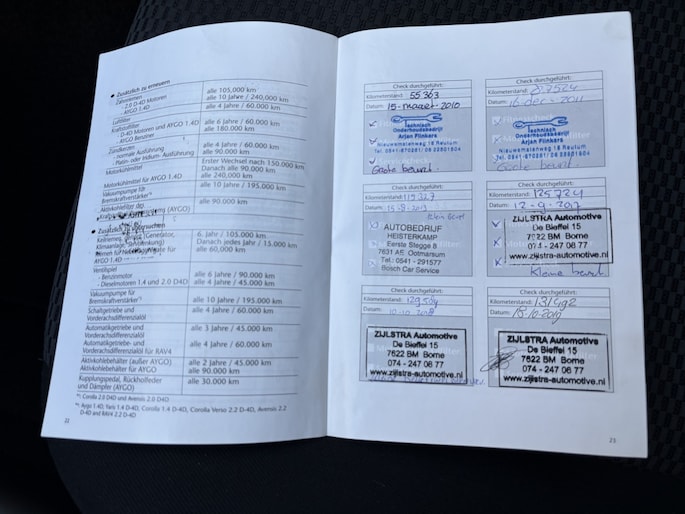 Zusätzlich zu erneuern
Zahnriemen
- 2.0 D-4D Motoren
- AYGO 1.4D
alle 105.000 km
alle 10 Jahre / 240.000 km
Luftfilter
alle 4 Jahre / 60.000 km
Kraftstofffilter
- D-4D Motoren und AYGO 1.4D
- AYGO Benziner
alle 6 Jahre / 60.000 km
alle 180.000 km
Zündkerzen
- normale Ausführung
- Platin- oder Iridium- Ausführung
alle 4 Jahre / 60.000 km
alle 90.000 km
Motorkühlmittel
Erster Wechsel nach 150.000 km
Danach alle 90.000 km
Motorkühlmittel für AYGO 1.4D
alle 240.000 km
Vakuumpumpe für
Bremskraftverstärker
alle 10 Jahre / 195.000 km
Aktivkohlefilter des
(AYGO)
alle 90.000 km
Zusätzlich zu
Keilriemen, (Generator,
Klimaanlage, Servolenkung)
6. Jahr / 105.000 km
Danach jedes Jahr / 15.000 km
für
AYGO 1.4D
alle 60.000 km
Ventilspiel
- Benzinmotor
- Dieselmotoren 1.4 und 2.0 D4D
alle 6 Jahre / 90.000 km
alle 4 Jahre / 45.000 km
Vakuumpumpe für
Bremskraftverstärker*¹
alle 10 Jahre / 195.000 km
Schaltgetriebe und
Vorderachsdifferenzialöl
alle 4 Jahre / 60.000 km
Automatikgetriebe und
Vorderachsdifferenzialöl
alle 3 Jahre / 45.000 km
Automatikgetriebe- und
Vorderachsdifferenzialöl für RAV4
alle 4 Jahre / 60.000 km
Aktivkohlebehälter (außer AYGO)
Aktivkohlebehälter für AYGO
alle 2 Jahre / 45.000 km
alle 90.000 km
Kupplungspedal, Rückholfeder
und Dämpfer (AYGO)
alle 30.000 km
*¹: Corolla 2.0 D4D und Avensis 2.0 D4D
*²: Aygo 1.4D, Yaris 1.4 D-4D, Corolla 1.4 D-4D, Corolla Verso 2.2 D-4D, Avensis 2.2
D-4D und RAV4 2.2 D-4D
22
Check durchgeführt:
Kilometerstand: 55363
Datum: 15-maart 2010
Technisch
Onderhoudsbedrijf
Arjan Flinkers
Nieuwematenweg 18 Reutum
Grote beurt.
Check durchgeführt:
Kilometerstand: 87524
Datum: 16-dec-2011
Technisch
Onderhoudsbedrijf
Arjan Flinkers
Nieuwematenweg 18 Reutum
Grote beurt.
Check durchgeführt:
Kilometerstand: 119327
Datum:
Klein beurt
AUTOBEDRIJF
HEISTERKAMP
Eerste Stegge 8
7631 AE Ootmarsum
Tel.: 0541 - 291577
Bosch Car Service
Check durchgeführt:
Kilometerstand: 125724
Datum: 12-9-2017
ZIJLSTRA Automotive
De Bieffel 15
7622 BM Borne
074 - 247 06 77
www.zijlstra-automotive.nl
Kleine beurt.
Check durchgeführt:
Kilometerstand:
Datum: 10-10-2018
ZIJLSTRA Automotive
De Bieffel 15
7622 BM Borne
074 - 247 06 77
www.zijlstra-automotive.nl
Check durchgeführt:
Kilometerstand: 131492
Datum: 15.10.2019
ZIJLSTRA Automotive
De Bieffel 15
7622 BM Borne
074 - 247 06 77
www.zijlstra-automotive.nl
23